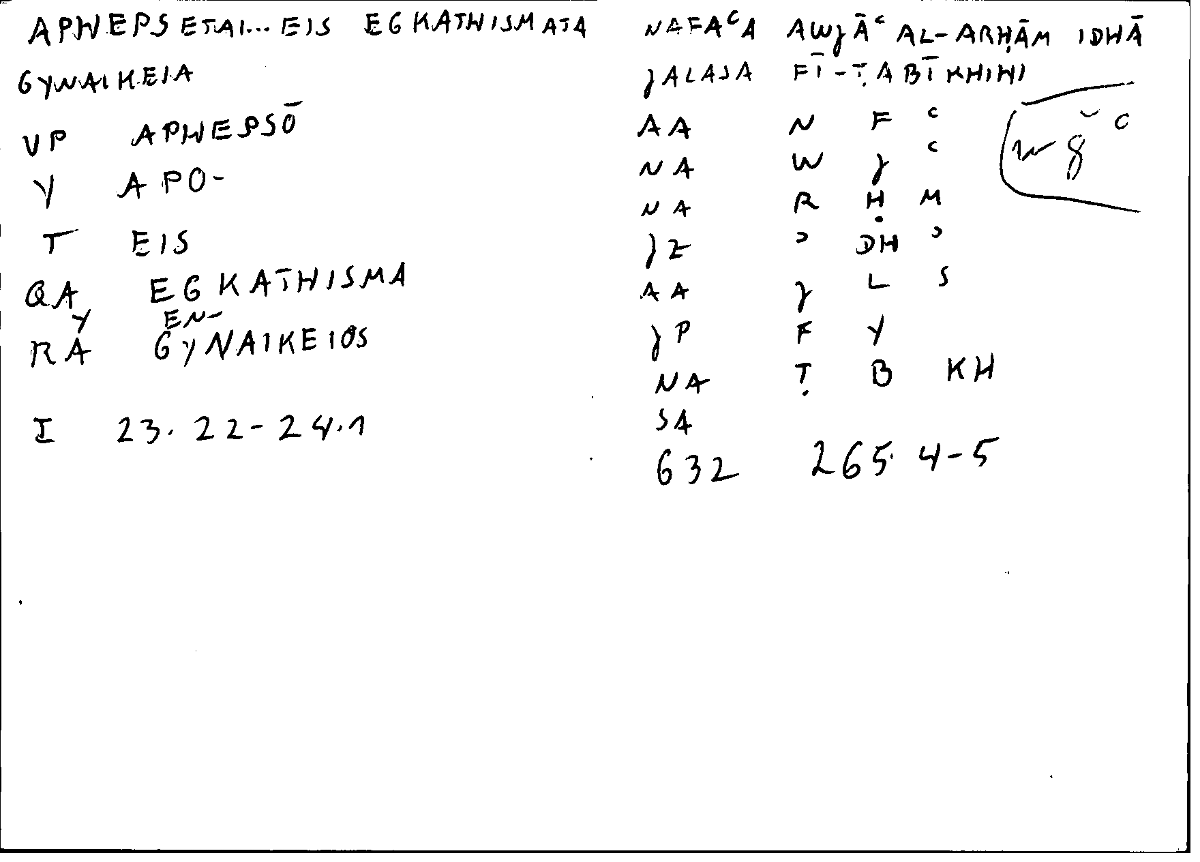 APHEPSETAI... EIS EGKATHISMATA
GYNAIKEIA
VP APHEPSŌ
Y APO-
T EIS
QA EGKATHISMA
Y EN-
RA GYNAIKEIOS
I 23.22-24.1
NAFAᶜA AWJĀᶜ AL-ARḤĀM IDHĀ
JALASA FĪ-ṬABĪKHIHI
AA N F ᶜ
NA W J ᶜ
NA R Ḥ M
JZ ʾ DH ʾ
AA J L S
JP F Y
NA Ṭ B KH
SA
632 265.4-5
w ğ ᶜ